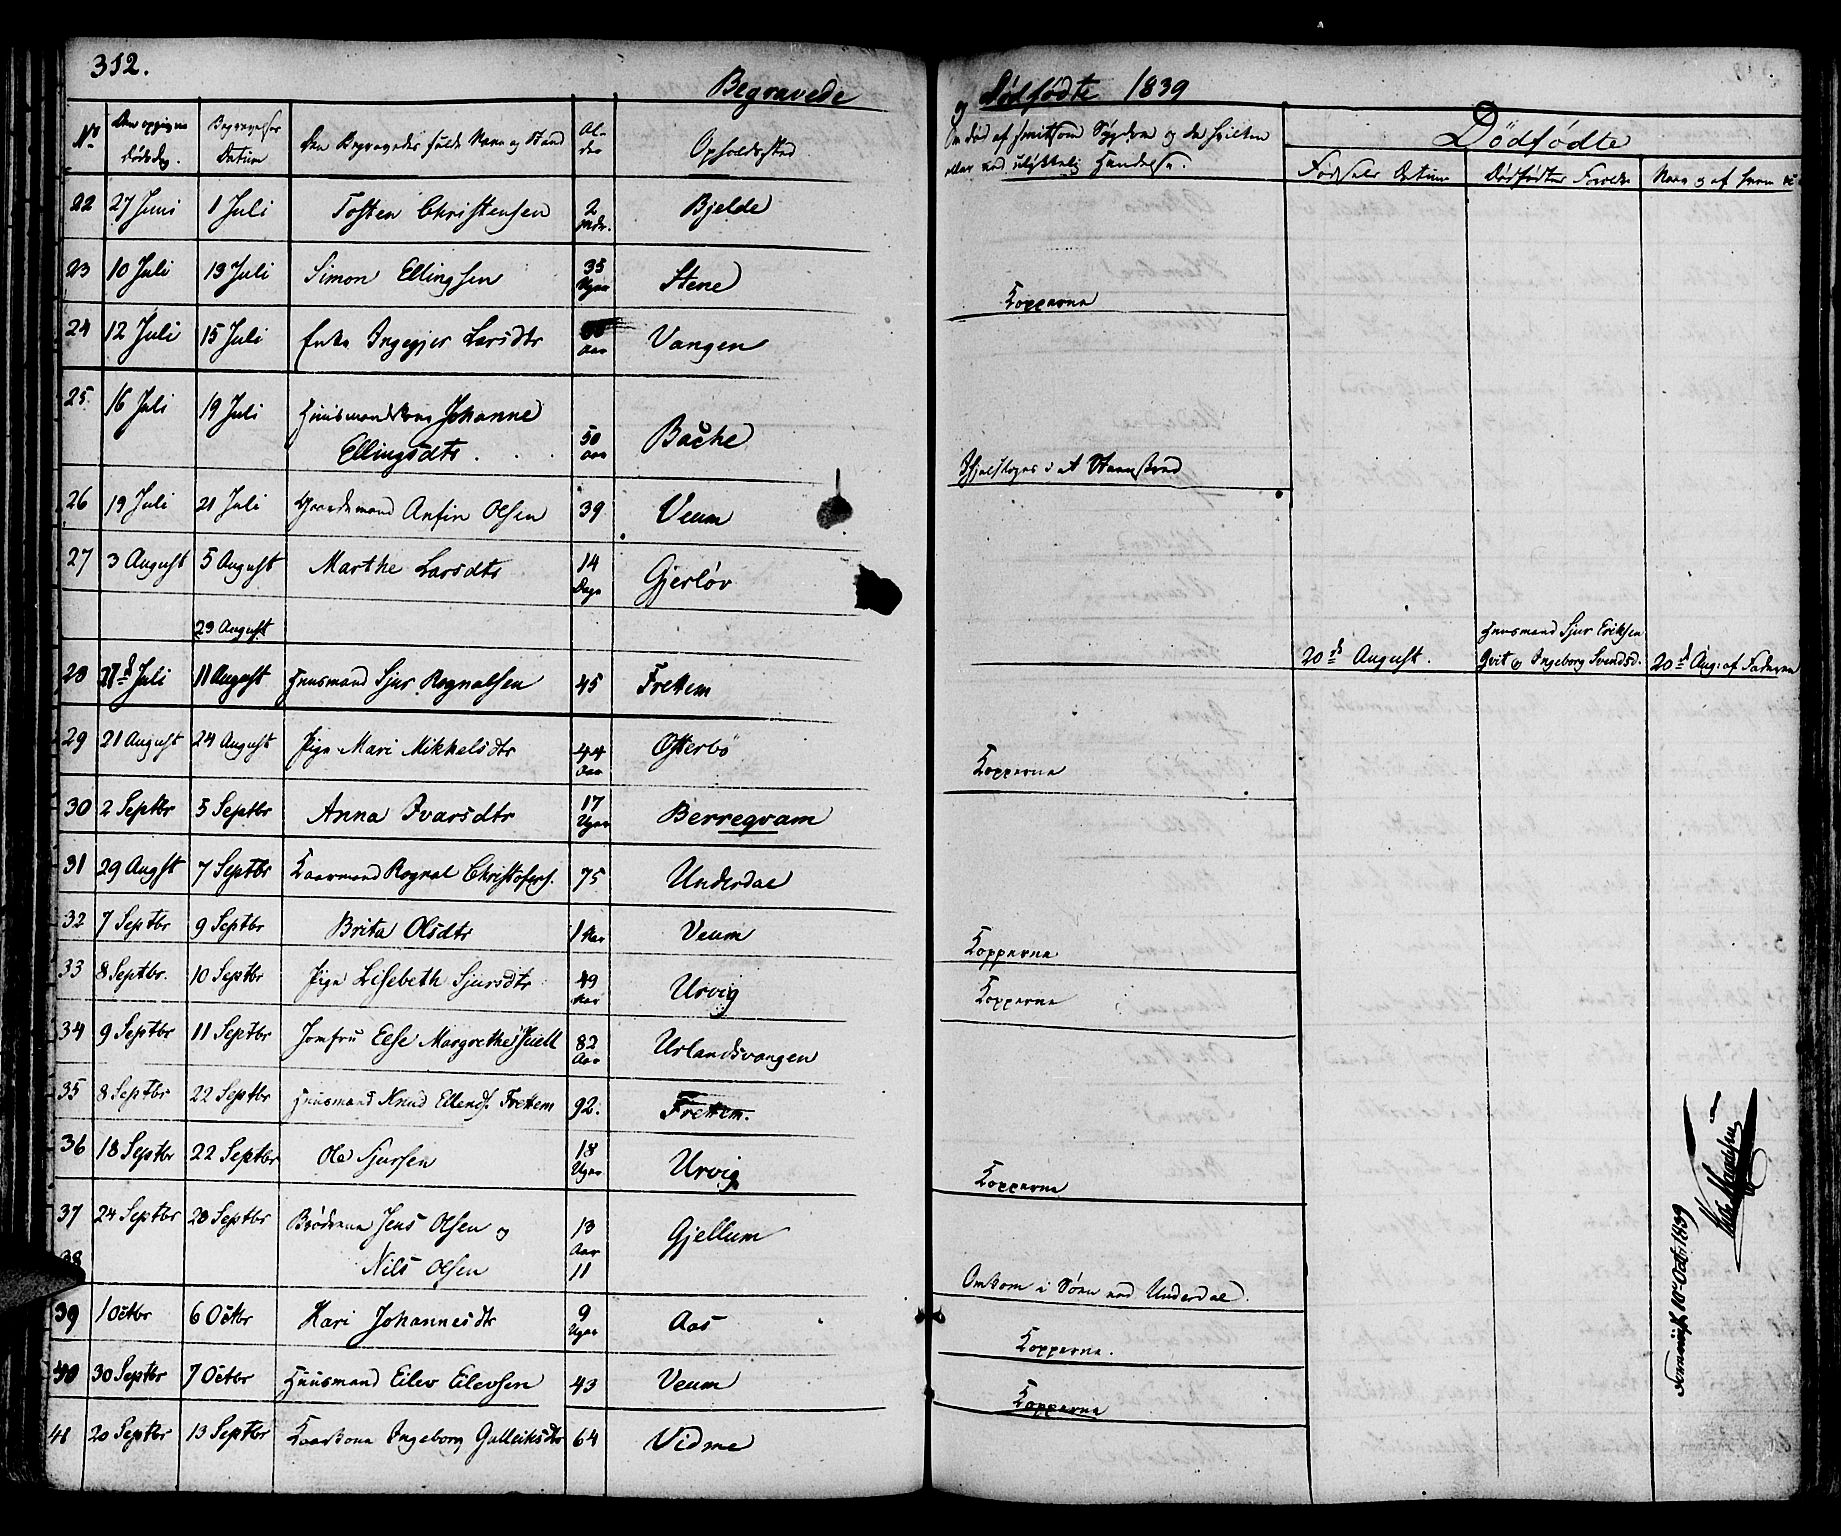 312.
Begravede
og Dødfødte 1839
No
Den opgivne Dødsdag.
Begravelses Datum
Den Begravedes fulde Navn og Stand
Alder
Opholdssted
Om død af smitsom Sygdom og da hvilken
eller ved ulykkelig Hændelse.
Dödfødte
Fødsels Datum
Dødfødtes Forældre
22 27 Juni 1 Juli Tosten Christensen 2 Bjelde
23 10 Juli 13 Juli Simon Ellingsen 35 Uger Stene Kopperne
24 12 Juli 15 Juli Enke Ingegjer Larsdtr Aar Vangen
25 16 Juli 19 Juli Huusmandskone Johanne
Ellingsdtr. 50 Aar Bache
Ihjelsloges i et Steenskred
26 19 Juli 21 Juli Gaardmand Anfin Olsen 39 Veum
27 3 August 5 August Marthe Larsdtr 14 Dage Gjerløv
23 August
20de August.
Huusmand Sjur Eriksen
Qvit og Ingeborg Svendsd.
20de Aug: af Faderen
28 27de Juli 11 August Huusmand Sjur Rognalsen 45 Frettem
29 21 August 24 August Pige Mari Mikkelsdtr 44 Aar Østerbö Kopperne
30 2 Septbr 5 Septbr Anna Ivarsdtr 17 Uger Berreqvam
31 29 Augst 7 Septbr Kaarmand Rognal Christofers. 75 Underdal
32 7 Septbr 9 Septbr Brita Olsdtr 1 Aar Veum Kopperne
33 8 Septbr. 10 Septbr Pige Lisebeth Sjursdtr 49 Aar Urvig Kopperne
34 9 Septbr 11 Septbr Jomfru Else Margrethe 82 Aar Urlandsvangen
35 8 Septbr 22 Septbr Huusmand Knud Ellends. Frettem 92. Frettem.
36 18 Septbr 22 Septbr Ole Sjursen 18 Uger Urvig Kopperne
37 24 Septbr 28 Septbr Brødrene Jens Olsen og 13 Aar Gjellum
38 Nils Olsen 11
Omkom i Søen ved Underdal.
39 1 Octbr 6 Octbr Kari Johannesdtr 9 Uger Aas Kopperne.
40 30 Septbr 7 Octbr Huusmand Eilev Eilevsen 43 Veum Kopperne
41 20 Septbr 13 Septbr Kaarkone Ingeborg Galleiksdtr 64 Vidme
10 Octb 1839